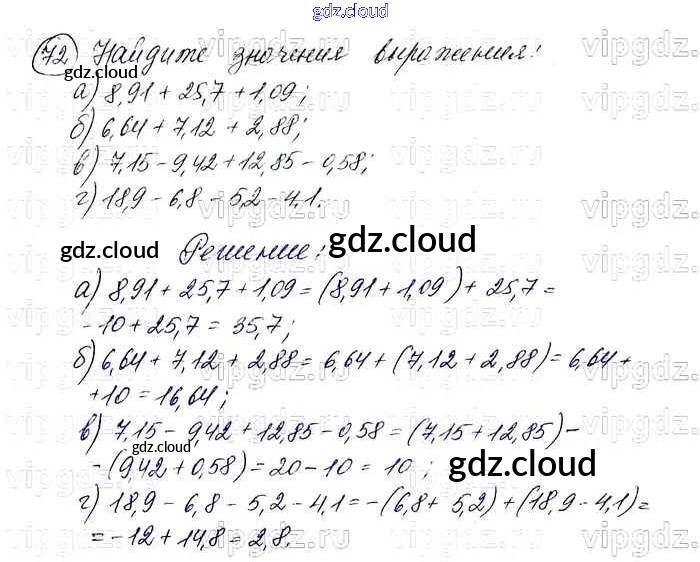 gdz.cloud
72 Найдите значения выражения:
а) 8,91 + 25,7 + 1,09;
б) 6,64 + 7,12 + 2,88;
в) 7,15 - 9,42 + 12,85 - 0,58;
г) 18,9 - 6,8 - 5,2 - 4,1.
Решение:
а) 8,91 + 25,7 + 1,09 = (8,91 + 1,09) + 25,7 =
- 10 + 25,7 = 35,7;
б) 6,64 + 7,12 + 2,88 = 6,64 + (7,12 + 2,88) = 6,64 +
+ 10 = 16,64;
в) 7,15 - 9,42 + 12,85 - 0,58 = (7,15 + 12,85) -
- (9,42 + 0,58) = 20 - 10 = 10;
г) 18,9 - 6,8 - 5,2 - 4,1 = -(6,8 + 5,2) + (18,9 - 4,1) =
= -12 + 14,8 = 2,8.
gdz.cloud
gdz.cloud
gdz.cloud
gdz.cloud
gdz.cloud
gdz.cloud
gdz.cloud
vipgdz.ru